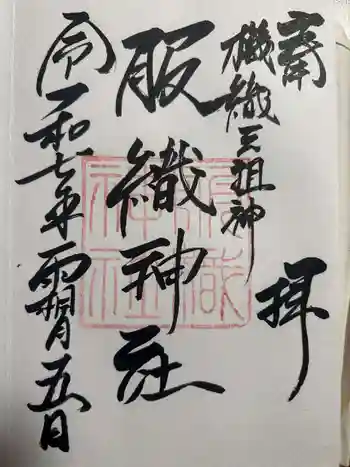 齋
機織元祖神
拝
服織神社
令和七年霜月五日
服織
神社